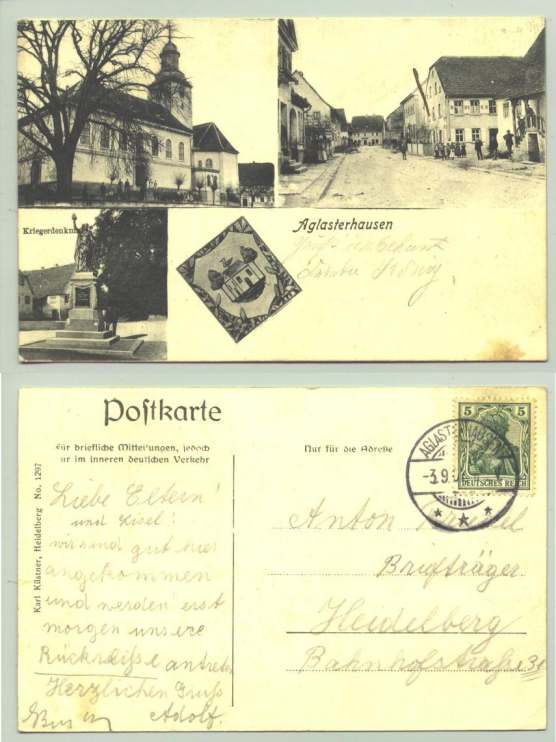 Kriegerdenkmal
Aglasterhausen
Postkarte
für briefliche Mitteilungen, jedoch
nur im inneren deutschen Verkehr
Nur für die Adresse
Karl Küstner, Heidelberg No. 1297
5 5
DEUTSCHES REICH
AGLAST
-3.9.
Liebe Eltern!
und Lisel!
wir sind gut hier
angekommen
und werden erst
morgen unsere
Rückreiße antreten
Herzlichen Gruß
Adolf.
Anton
Briefträger
Heidelberg
Bahnhofstraße 31